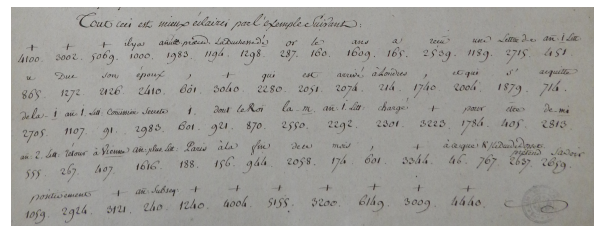 Tout ceci est mieux éclairci par l'Exemple Suivant:
+ + + il y as prétend La duchesse de or le ans a reçu une Lettre de an. 1. Litt
4100. 3002. 5069. 1000. 1983. 1194. 1298. 287. 160. 1609. 165. 2539. 1189. 2715. 451.
u Duc son époux, + qui est arrivé à Londres, et qui s' acquitte
865. 1272. 2126. 2410. 601. 3040. 2280. 2051. 2074. 214. 1740. 2004. 1879. 714.
de la 1 an. 1. litt. Commission Secrete 1. dont le Roi la m an. 1. litt. chargé + pour être de mi
2705. 1107. 91. 2983. 601. 921. 870. 2550. 2292. 2301. 3223. 1784. 405. 2813.
an. 2. litt. retour à Vienne an. plus litt. Paris à la fin de ce mois, + à ce que prétend Savoir
555. 267. 407. 1616. 188. 156. 944. 2058. 174. 601. 3344. 46. 767. 2637. 2659.
positivement + an. Subseq. + + + + + + +
1059. 2924. 3121. 240. 1240. 4004. 5155. 3200. 6149. 3009. 4440.